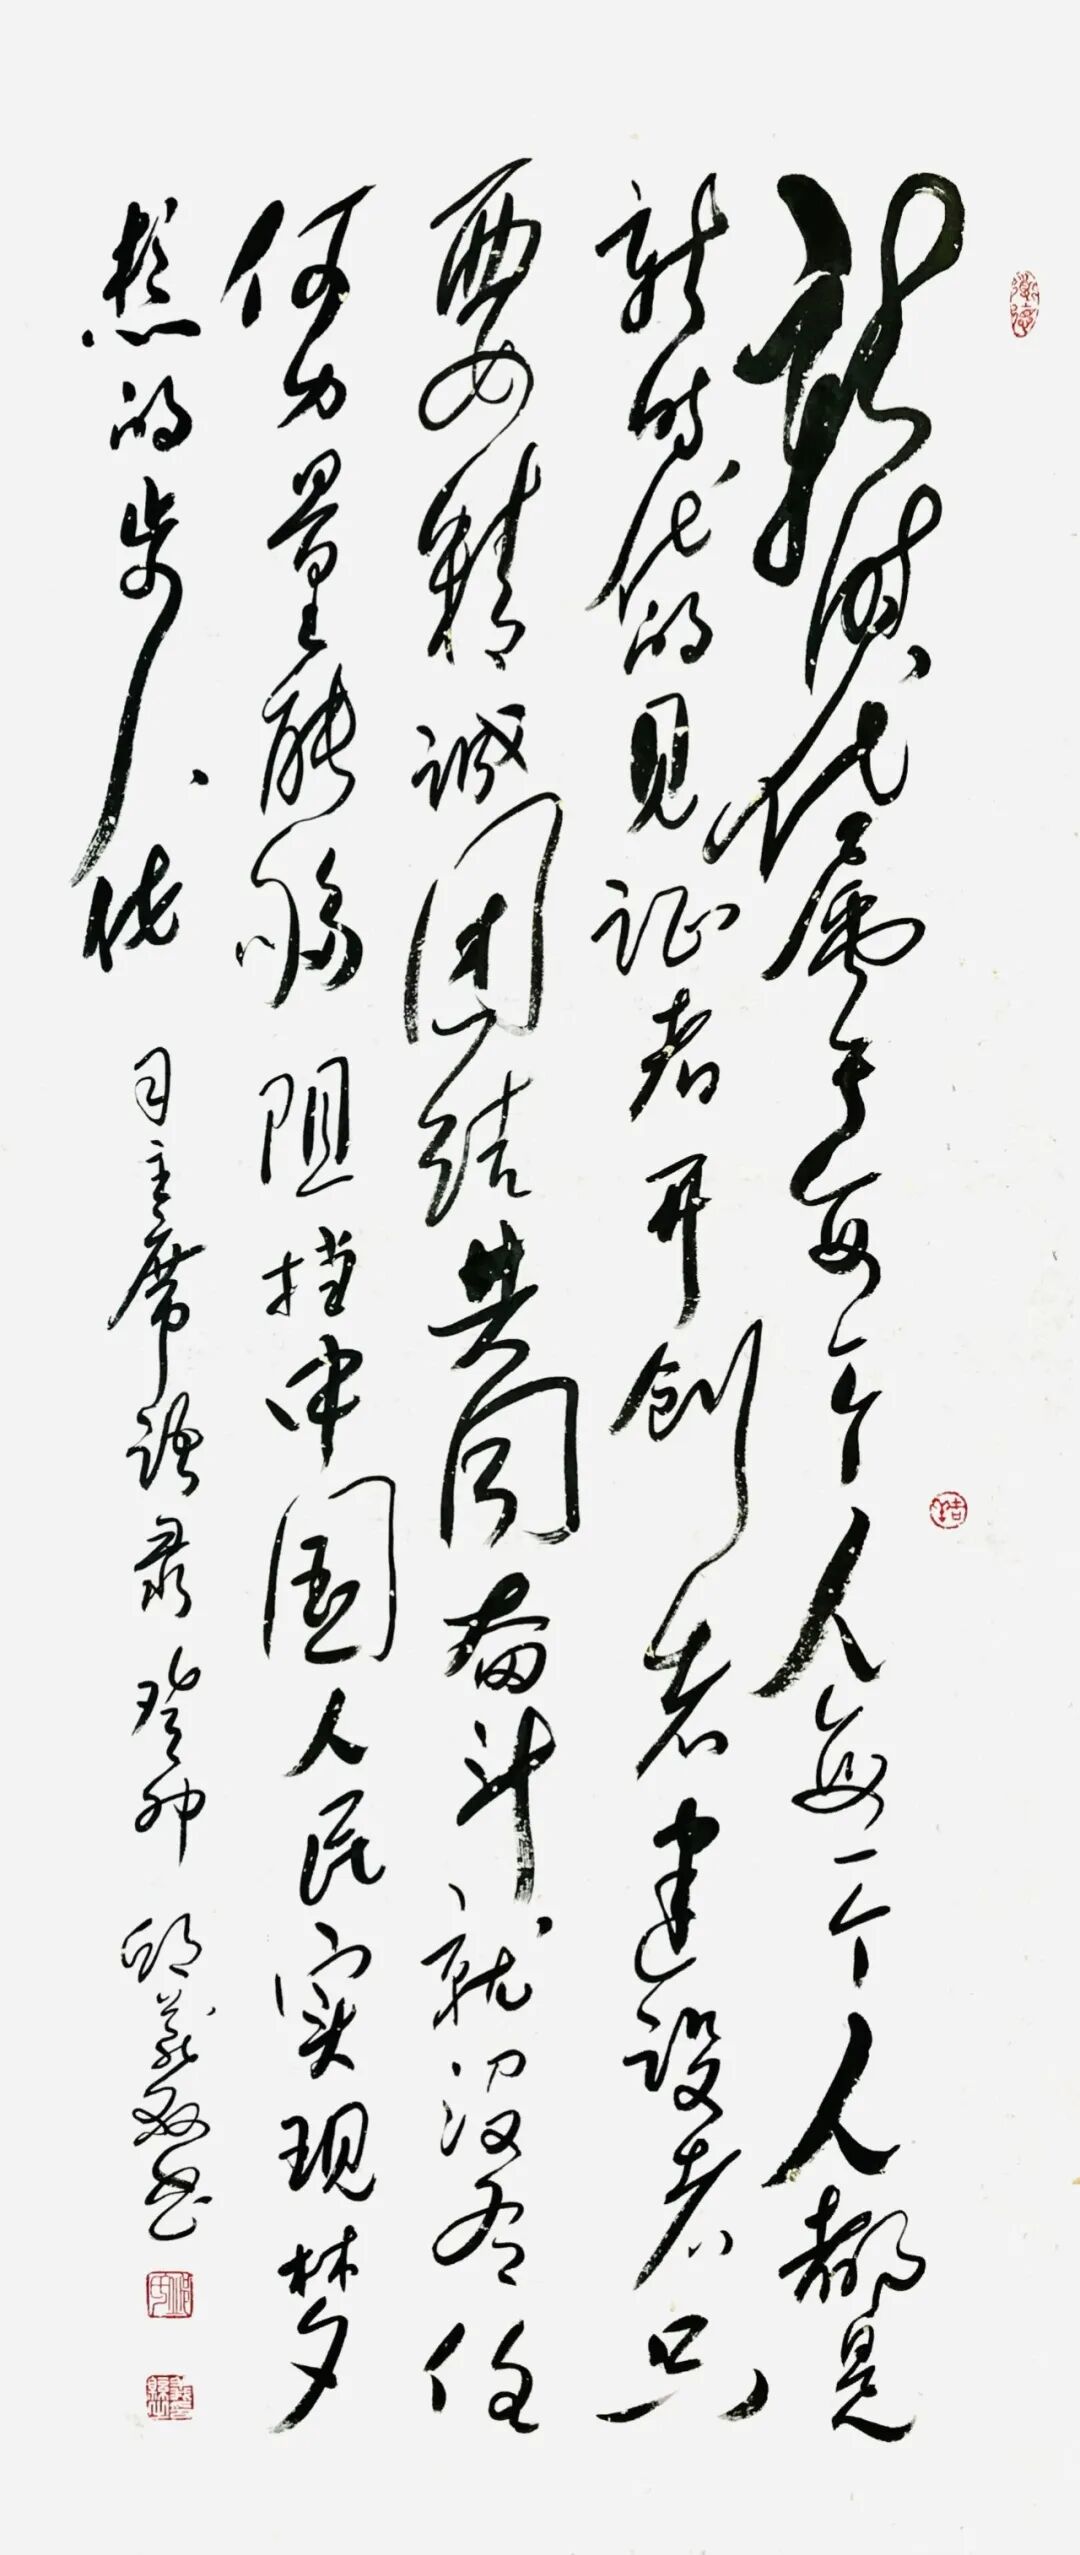 新时代属于每一个人每一个人都是
新时代的见证者开创者建设者只
要精诚团结共同奋斗就没有任
何力量能够阻挡中国人民实现梦
想的步伐 习主席语录 癸卯 邱义书